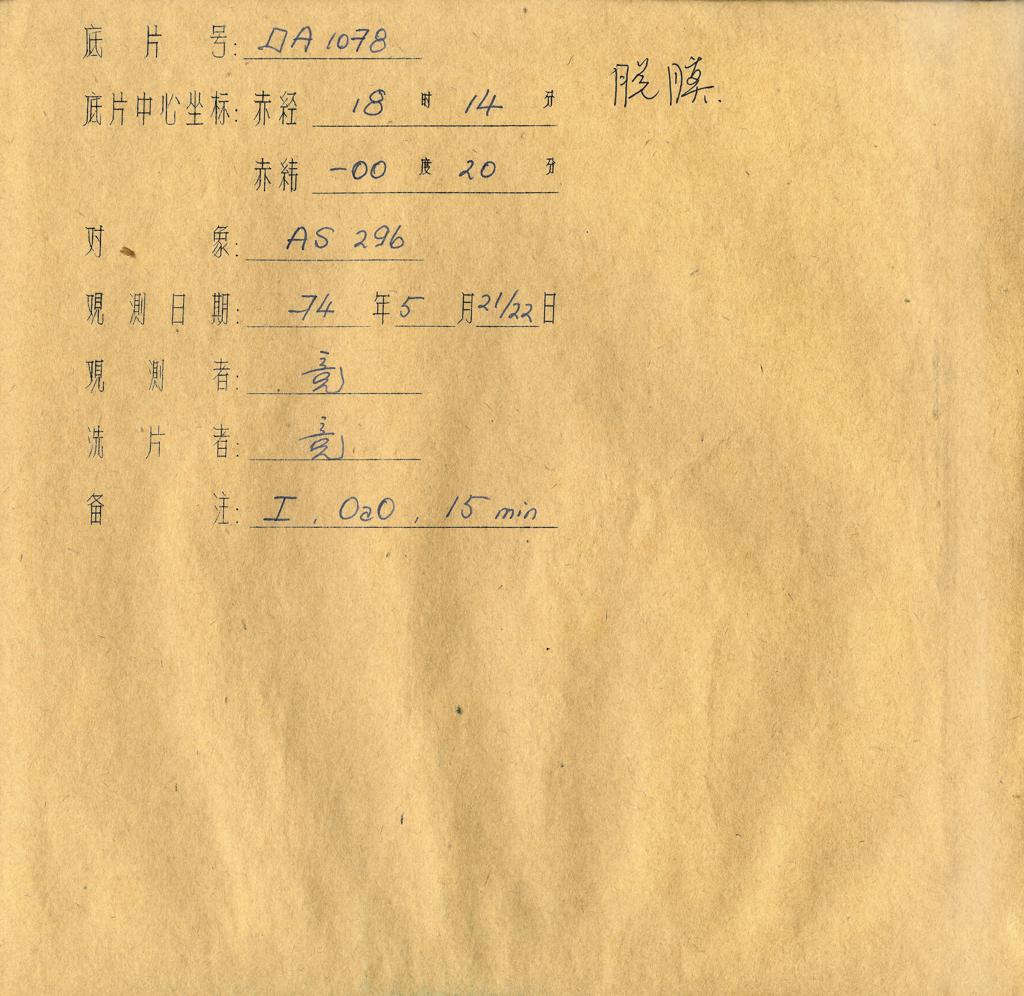 底片号: DA 1078
脱膜.
底片中心坐标: 赤经 18 时 14 分
赤纬 -00 度 20 分
对象: AS 296
观测日期: 74 年 5 月 21/22 日
观测者: 竟
洗片者: 竟
备注: I, OaO, 15 min